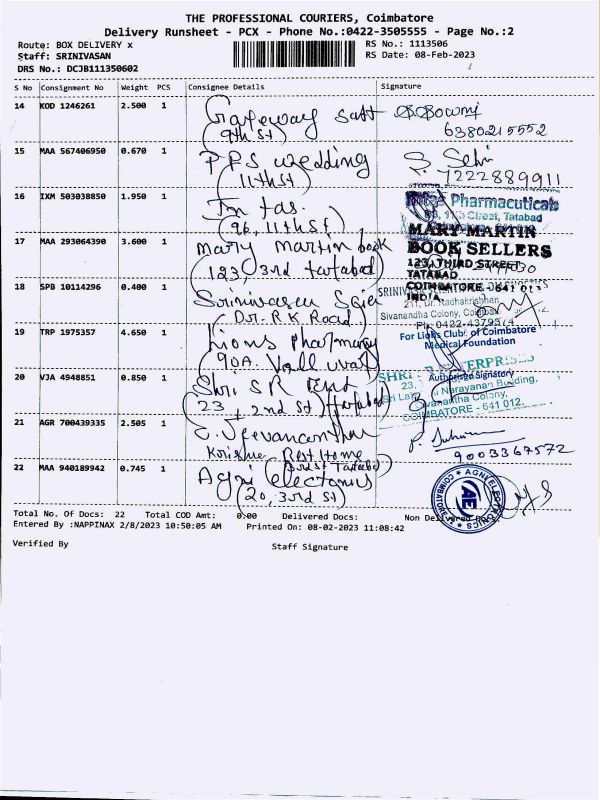 THE PROFESSIONAL COURIERS, Coimbatore
Delivery Runsheet - PCX - Phone No.:0422-3505555 - Page No.:2
Route: BOX DELIVERY x
RS No.: 1113506
Staff: SRINIVASAN
RS Date: 08-Feb-2023
DRS No.: DCJB111350602
S No Consignment No Weight PCS Consignee Details Signature
14 KOD 1246261 2.500 1 Gateway
(9th St)
6380215552
15 MAA 567406950 0.670 1 PPS wedding
(11th St)
7222889911
16 IXM 503038850 1.950 1
(96, 11th St)
Pharmaceuticals
Street, Tatabad
17 MAA 293064390 3.600 1 Mary Martin book
(123, 3rd tatabad)
MARY MARTIN
BOOK SELLERS
123, THIRD STREET
TATABAD
COIMBATORE - 641 012
INDIA.
18 SPB 10114296 0.400 1 Srinivasan
Dr. R K Road
211, Dr. Radhakrishnan
Sivanandha Colony,
Ph: 0422-4379574
19 TRP 1975357 4.650 1 Lions Pharmacy
90A.
For Lions Club of Coimbatore
Medical Foundation
Authorised Signatory
20 VJA 4948851 0.850 1 Shri SR
23, 2nd St tatabad
23,
Narayanan Building,
Sivanantha Colony,
COIMBATORE - 641 012.
21 AGR 700439335 2.505 1
Rest Home
(3rd St Tatabad)
9003367572
22 MAA 940189942 0.745 1 Agni electronics
(20, 3rd St)
AGNI ELECTRONICS
COIMBATORE
AE
Total No. Of Docs: 22 Total COD Amt: 0.00 Delivered Docs: Non Delivered
Entered By :NAPPINAX 2/8/2023 10:50:05 AM Printed On: 08-02-2023 11:08:42
Verified By
Staff Signature